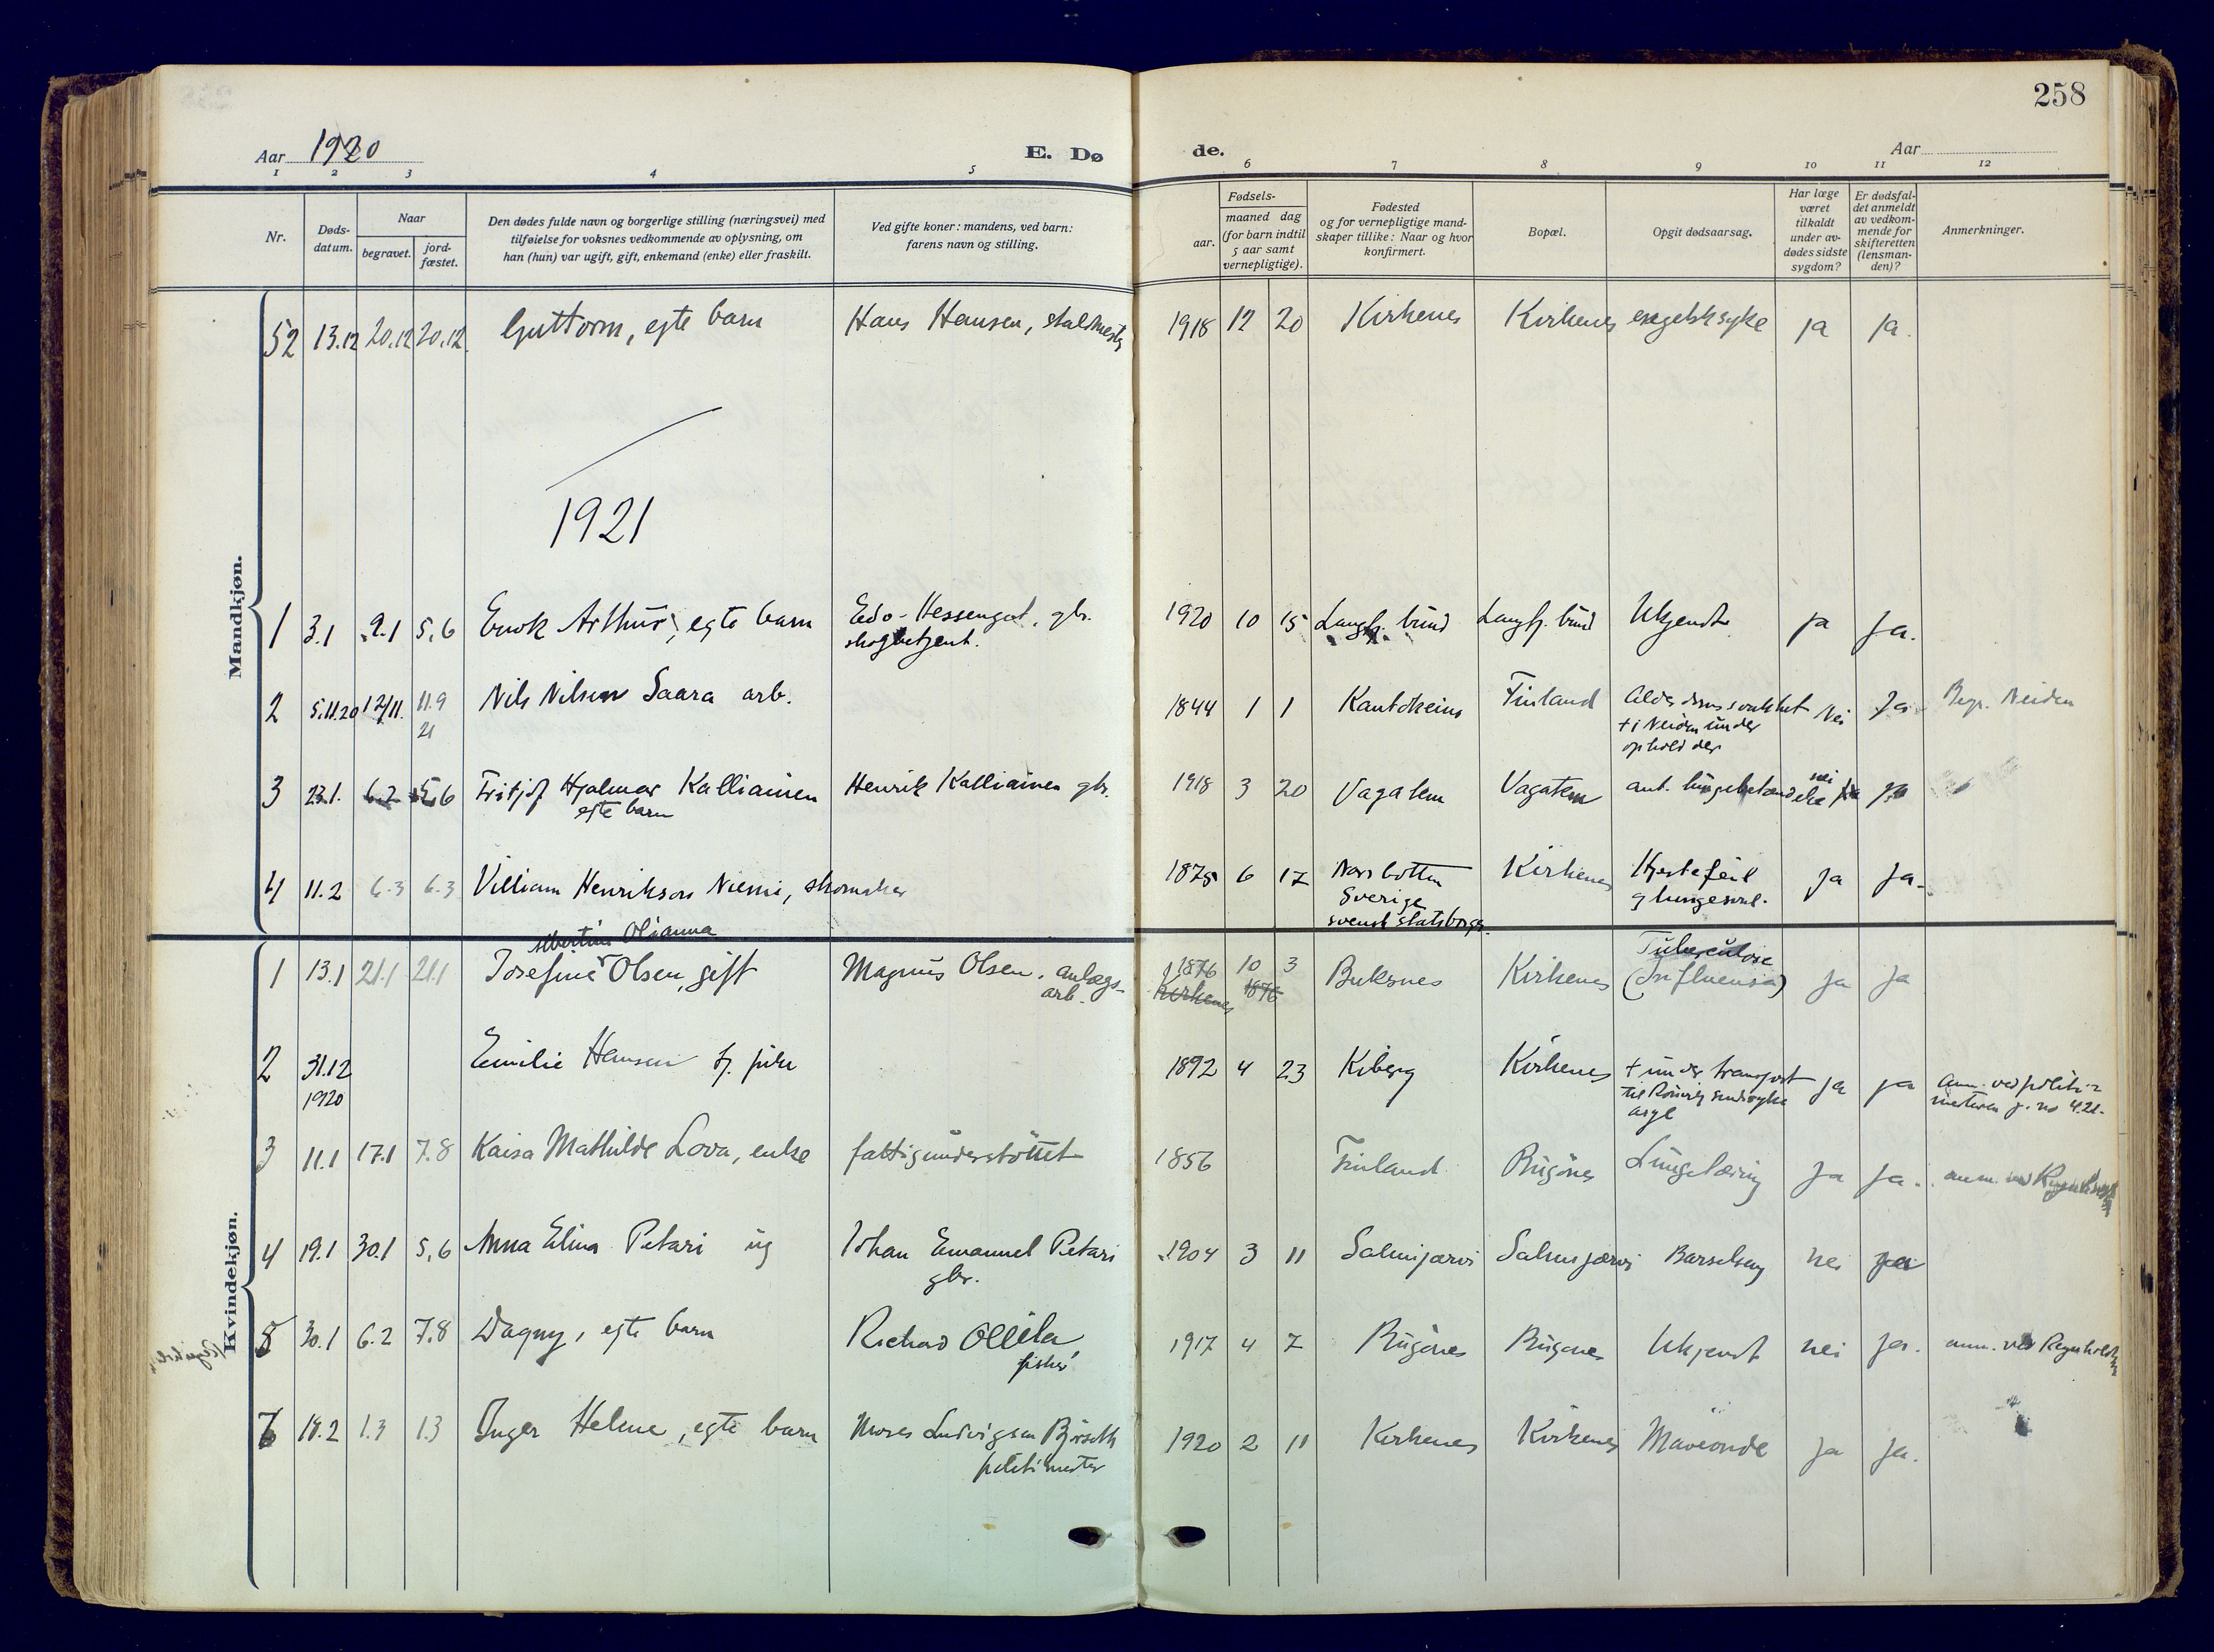 258
Aar 1920
E. Dø
de.
Aar
1 2 3 4 5 6 7 8 9 10 11 12
Nr.
Døds-
datum.
Naar
begravet.
jord-
fæstet.
Den dødes fulde navn og borgerlige stilling (næringsvei) med
tilføielse for voksnes vedkommende av oplysning, om
han (hun) var ugift, gift, enkemand (enke) eller fraskilt.
Ved gifte koner: mandens, ved barn:
farens navn og stilling.
Fødsels-
aar.
maaned dag
(for barn indtil
5 aar samt
vernepligtige).
Fødested
og for vernepligtige mand-
skaper tillike: Naar og hvor
konfirmert.
Bopæl.
Opgit dødsaarsag.
Har læge
været
tilkaldt
under av-
dødes sidste
sygdom?
Er dødsfal-
det anmeldt
av vedkom-
mende for
skifteretten
(lensman-
den)?
Anmerkninger.
Mandkjøn.
52 13.12 20.12 20.12. Guttorm, egte barn Hans Hansen, staldmester 1918 12 20 Kirkenes Kirkenes engelsk syke ja ja.
1921
1 3.1 9.1 5.6 Enok Arthur, egte barn Edv. Hessengut, gbr. 1920 10 15 Langfj. bund Langfj. bund Ukjendt ja ja.
skogbetjent.
2 5.11.20 12/11. 11.9 Nils Nilsen Saara arb. 1844 1 1 Kautokeino Finland Alderdomssvakhet Nei Ja Begr. Neiden
21 + i Neiden under
ophold der
3 23.1. 6.2 5.6 Fritjof Hjalmar Kalliainen Henrik Kalliainen gbr. 1918 3 20 Vagatem Vagatem ant. lungebetændelse nei ja
egte barn
4 11.2 6.3 6.3 Villiam Henrikson Niemi, skomaker 1875 6 17 Norrbotten Kirkenes Hjertefeil ja ja.
Sverige
svensk statsborger.
Kvindekjøn.
Albertine Olianna
Tuberculose
1 13.1 21.1 21.1 Josefine Olsen, gift Magnus Olsen, anlegs- 1876 10 3 Buksnes Kirkenes (Influensa) ja ja
arb. Kirkenes 1876
2 31.12 Emilie Hansen tj. pike 1892 4 23 Kiberg Kirkenes + under transport ja ja
1920 til Rönvig sindssyke
asyl
3 11.1 17.1 7.8 Kaisa Mathilde Lova, enke fattigunderstöttet 1856 Finland Bugönes ja ja.
4 19.1 30.1 5.6 Anna Elina Petari ug Johan Emanuel Petari 1904 3 11 Salmijarvi Salmijarvi Barselseng nei ja
gbr.
5 30.1 6.2 7.8 Dagny, egte barn Richard Ollila 1917 4 7 Bugönes Bugönes Ukjendt nei ja. anm. ved
fisker
6 18.2 1.3 1.3 Inger Helene, egte barn Ludvigsen Björseth 1920 2 11 Kirkenes Kirkenes Maveonde ja ja.
politimester